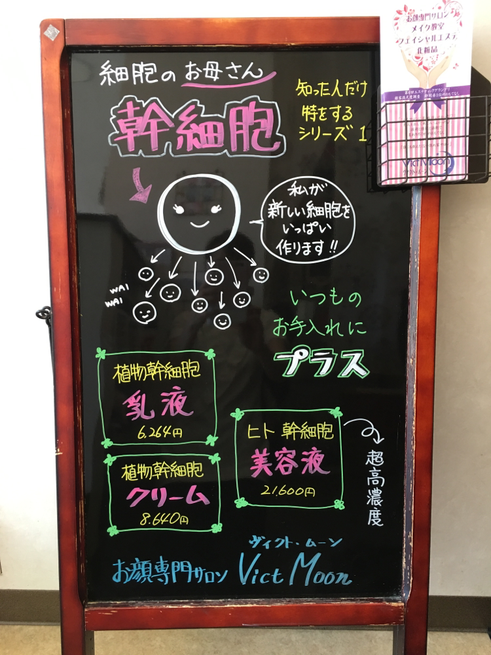 細胞の お母さん
幹細胞
知った人だけ
特をする
シリーズ 1
私が
新しい細胞を
いっぱい
作ります!!
WAI
WAI
いつもの
お手入れに
プラス
植物幹細胞
乳液
6.264円
植物幹細胞
クリーム
8.640円
ヒト 幹細胞
美容液
21.600円
超高濃度
ヴィクト・ムーン
お顔専門サロン Vict Moon
お顔専門サロン
メイク教室
フェイシャルエステ
化粧品
Vict Moon